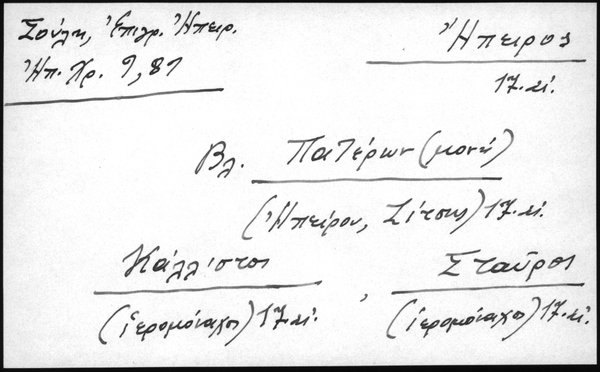 Σούλη, Ἐπιγρ. Ἠπειρ.
Ἠπ. Χρ. 9, 89
Ἤπειρος
17. αἰ.
Βλ. Πατέρων (μονή)
(Ἠπείρου, Ζίτσης) 17. αἰ.
Κάλλιστος , Σταῦρος
(ἱερομόναχος) 17. αἰ. (ἱερομόναχος) 17. αἰ.